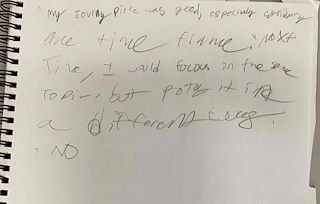 " my piece was good, especially considering
time frame. next
Time, I would focus in the same
Topic, but it in
a different
" NO